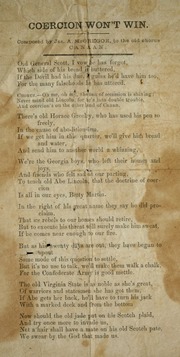 COERCION WON'T WIN.
Composed by Jas. A. McGRIGOR, to the old chorus
CANAAN.
Old General Scott, I vow he has forgot,
Which side of his bread is buttered,
If the Devil had his due, I guess he'd have him too,
For the many falsehoods he has uttered.
There's old Horace Greeley, who has used his pen so
freely,
In the cause of abolitionism,
If we get him in this quarter, we'll give him bread
and water,
And send him to another world a whizzing,
We're the Georgia boys, who left their homes and
And friends who felt sad at our parting,
To teach old Abe Lincoln, that the doctrine of coer-
cion
Is all in our eyes, Betty Martin.
In the right of his great name they say he did pro-
claim,
That us rebels to our homes should retire,
But to execute his threat will surely make him sweat
If he comes near enough to our fire.
But as his twenty days are out, they have begun to
repent
Some mode of this question to settle,
But it's no use to talk, we'll make them walk a chalk
For the Confederate Army is good mettle.
The old Virginia State is as noble as she's great,
Of warriors and statesmen she has got them,
If Abe gets her back, he'll have to turn his jack
With a marked deck and from the bottom
Now should the old jade put on his Scotch plaid,
And try once more to invade us,
Not a hair shall have a mate on his old Scotch pate
We swear by the God that made us.